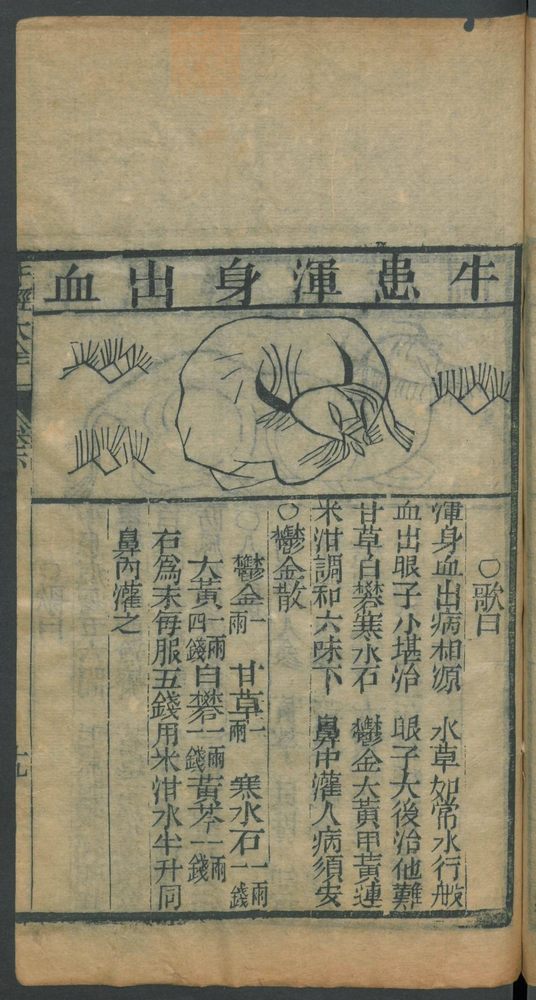 牛患渾身出血
○歌曰
渾身血出病相源　水草如常水行般
血出眼子小堪治　眼子大後治他難
甘草白礬寒水石　鬱金大黃甲黃連
米泔調和六味下　鼻中灌入病須安
○鬱金散
鬱金一兩　甘草一兩　寒水石一兩一錢
大黃一兩四錢　白礬一兩一錢　黃芩一兩一錢
右為末每服五錢用米泔水半升同
鼻內灌之
牛經大全
卷下